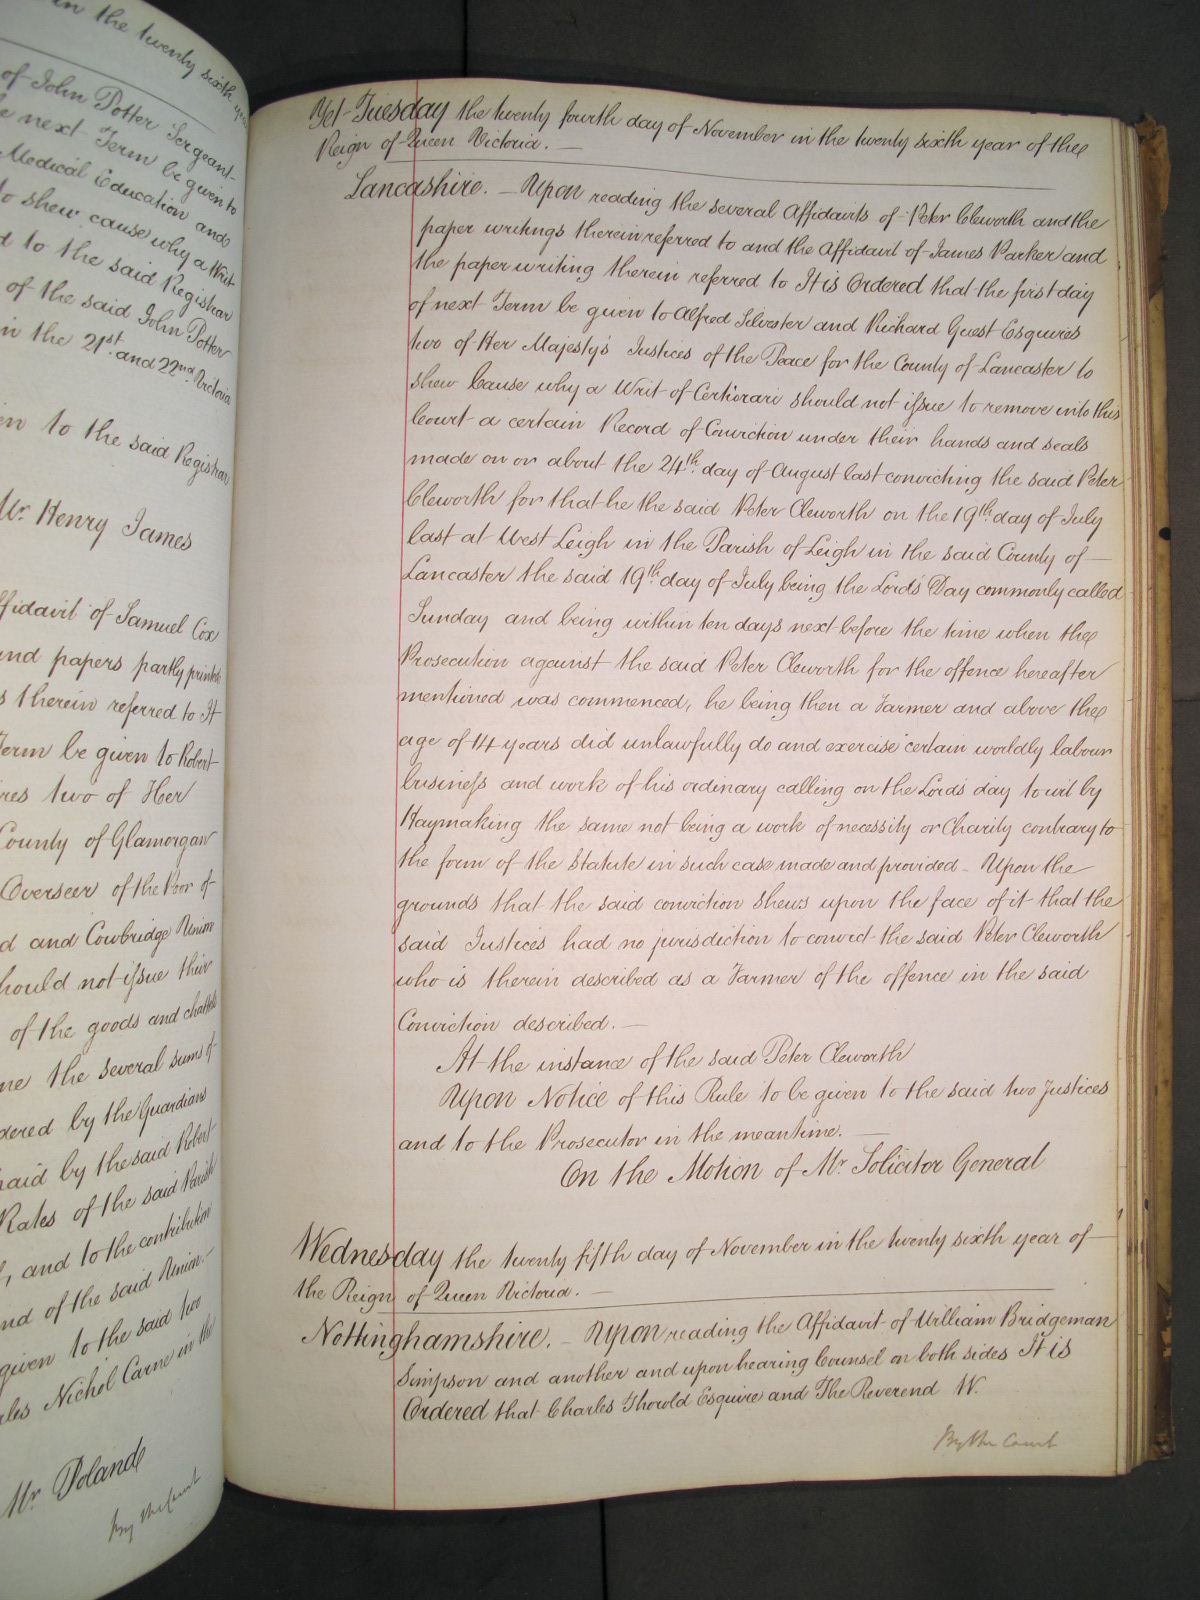 in the twenty sixth
of John Potter Sergeant
next Term be given to
Medical Education and
to shew cause why a Writ
to the said Registrar
of the said John Potter
in the 21st. and 22nd Victoria
en to the said Registrar
Mr. Henry James
ffidavit of Samuel Cox
and papers partly
s therein referred to It
Term be given to Robert
ires two of Her
County of Glamorgan
Overseer of the Poor of
d and Cowbridge Union
hould not issue their
of the goods and chattels
me the several sums of
dered by the Guardians
paid by the said Robert
Rates of the said Parish
, and to the contribution
nd of the said Union.
given to the said two
les Nichol Carne in the
Mr. Poland
By the Court
Yet Tuesday the twenty fourth day of November in the twenty sixth year of the
Reign of Queen Victoria. —
Lancashire. — Upon reading the several Affidavits of Peter Cleworth and the
paper writings therein referred to and the Affidavit of James Parker and
the paper writing therein referred to It is Ordered that the first day
of next Term be given to Alfred Silvester and Richard Guest Esquires
two of Her Majesty's Justices of the Peace for the County of Lancaster to
shew Cause why a Writ of Certiorari should not issue to remove into this
Court a certain Record of Conviction under their hands and seals
made on or about the 24th. day of August last convicting the said Peter
Cleworth for that he the said Peter Cleworth on the 19th. day of July
last at West Leigh in the Parish of Leigh in the said County of —
Lancaster the said 19th. day of July being the Lords Day commonly called
Sunday and being within ten days next before the time when the
Prosecution against the said Peter Cleworth for the offence hereafter
mentioned was commenced, he being then a Farmer and above the
age of 14 years did unlawfully do and exercise certain worldly labour
business and work of his ordinary calling on the Lords day to wit by
Haymaking the same not being a work of necessity or Charity contrary to
the form of the Statute in such case made and provided – Upon the
grounds that the said conviction shews upon the face of it that the
said Justices had no jurisdiction to convict the said Peter Cleworth
who is therein described as a Farmer of the offence in the said
Conviction described. —
At the instance of the said Peter Cleworth
Upon Notice of this Rule to be given to the said two Justices
and to the Prosecutor in the meantime. —
On the Motion of Mr. Solicitor General
Wednesday the twenty fifth day of November in the twenty sixth year of
the Reign of Queen Victoria. —
Nottinghamshire. — Upon reading the Affidavit of William Bridgeman
Simpson and another and upon hearing Counsel on both sides It is
Ordered that Charles Thorold Esquire and The Reverend W.
By the Court